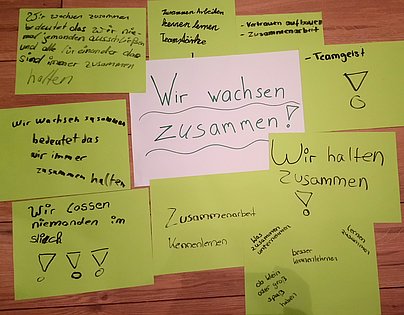 Wir wachsen zusammen
bedeutet das wir nie-
mal jemanden ausschließen
und alle für einander da
sind immer zusammen
halten
Zusammen Arbeiten
kennen lernen
Teamstärke
- Vertrauen aufbauen
- Zusammenarbeit
- Teamgeist
!
Wir wachsen
zusammen!
Wir wachsen zusammen
bedeutet das
wir immer
zusammen halten
Wir halten
zusammen
!
Wir lassen
niemanden im
stich
! ! !
Zusammenarbeit
Kennenlernen
Was
zusammen
unternehmen
lernen
zusammen
besser
kennenlernen
ob klein
oder groß
spaß
haben